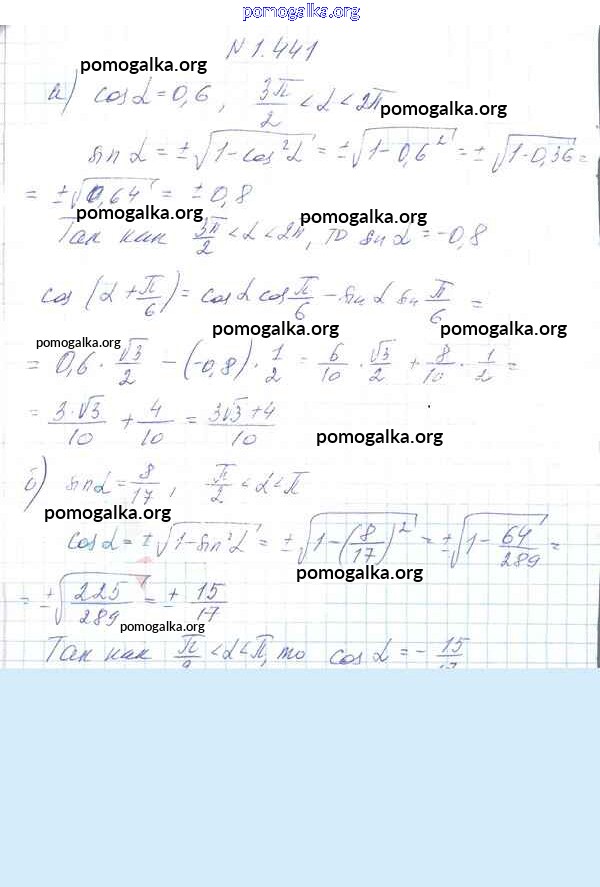 pomogalka.org
N 1.441
pomogalka.org
а) cos α = 0,6 , 3π/2 < α < 2π
pomogalka.org
sin α = ±√(1 - cos²α) = ±√(1 - 0,6²) = ±√(1 - 0,36) =
= ±√0,64 = ±0,8
pomogalka.org pomogalka.org
Так как 3π/2 < α < 2π, то sin α = -0,8
cos (α + π/6) = cos α cos π/6 - sin α sin π/6 =
pomogalka.org pomogalka.org
pomogalka.org
= 0,6 · √3/2 - (-0,8) · 1/2 = 6/10 · √3/2 + 8/10 · 1/2 =
= 3·√3/10 + 4/10 = 3√3+4/10
pomogalka.org
б) sin α = 8/17 , π/2 < α < π
pomogalka.org
cos α = ±√(1 - sin²α) = ±√(1 - (8/17)²) = ±√(1 - 64/289) =
pomogalka.org
= ±√(225/289) = ± 15/17
pomogalka.org
Так как π/2 < α < π, то cos α = - 15/17